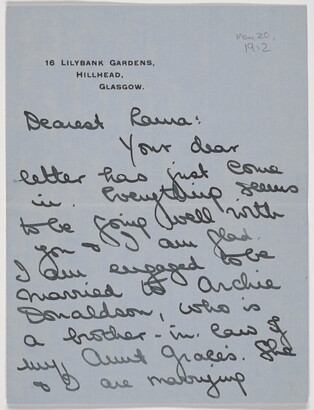 Nov. 20,
1912
16 LILYBANK GARDENS,
HILLHEAD,
GLASGOW.
Dearest Rama:
Your dear
letter has just come
in. Everything seems
to be going well with
you & I am glad.
I am engaged to be
married to Archie
Donaldson, who is
a brother-in-law of
my Aunt Grace's. She
& I are marrying